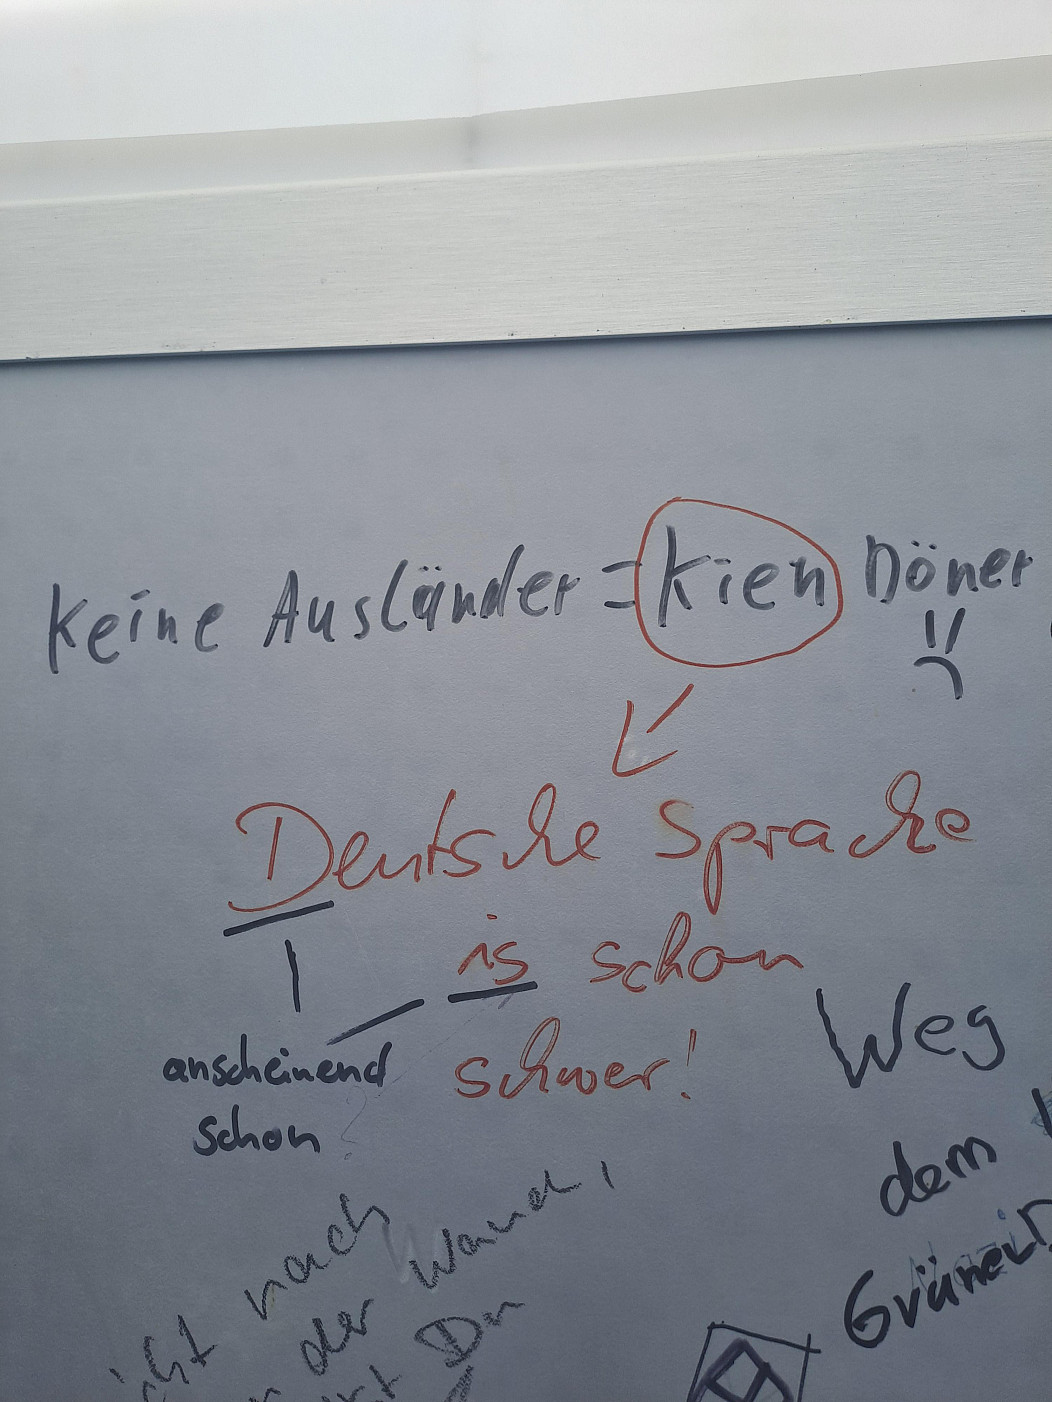 Keine Ausländer = Kien Döner
Deutsche Sprache
is schon
schwer!
anscheinend
schon
Weg
dem
nach
der Wand,
Du